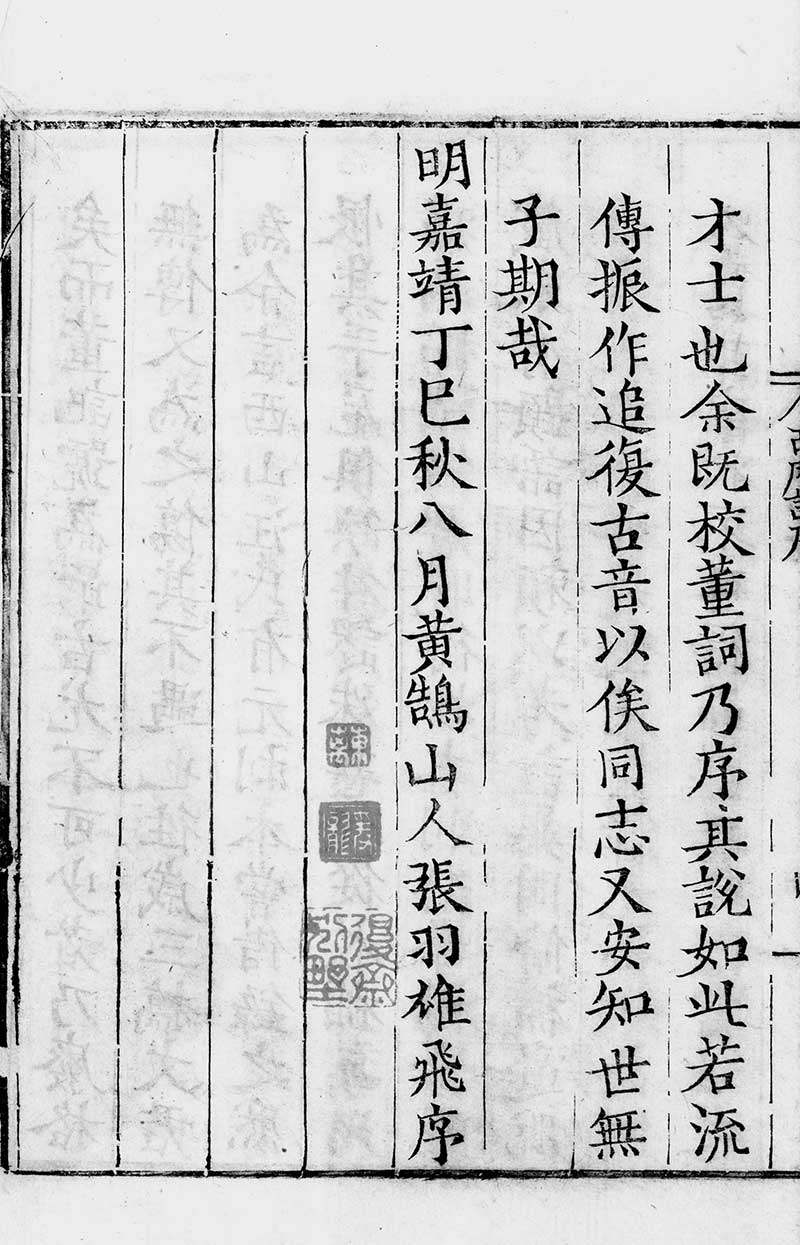 才士也余既校董詞乃序其說如此若流
傳振作追復古音以俟同志又安知世無
子期哉
明嘉靖丁巳秋八月黃鵠山人張羽雄飛序